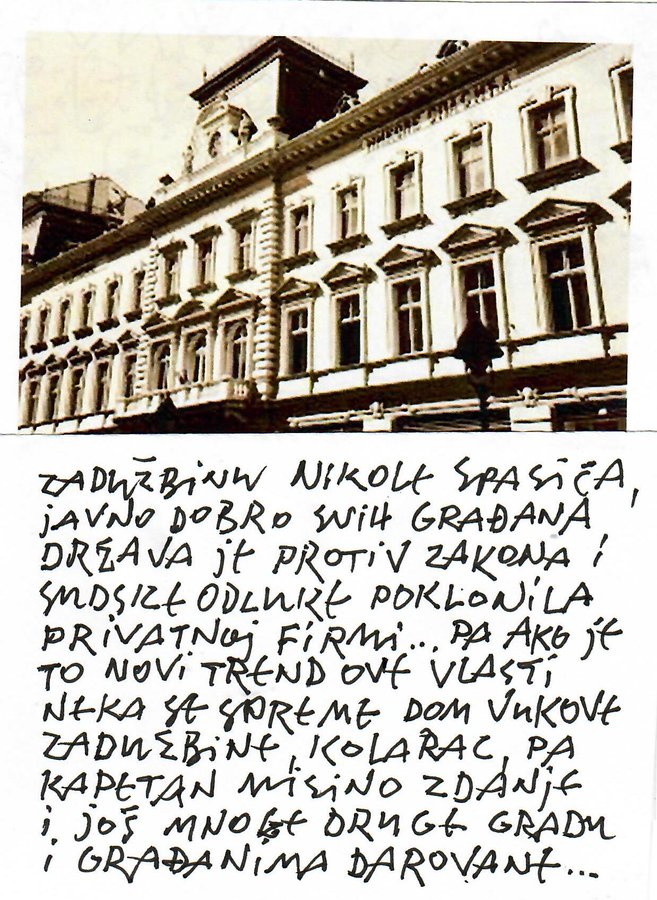 ZADUŽBINU NIKOLE SPASIĆA,
JAVNO DOBRO SVIH GRAĐANA
DRŽAVA JE PROTIV ZAKONA I
SUDSKE ODLUKE POKLONILA
PRIVATNOJ FIRMI... PA AKO JE
TO NOVI TREND OVE VLASTI
NEKA SE SPREME DOM VUKOVE
ZADUŽBINE, KOLARAC, PA
KAPETAN MIŠINO ZDANJE
I JOŠ MNOGE DRUGE GRADU
I GRAĐANIMA DAROVANE...